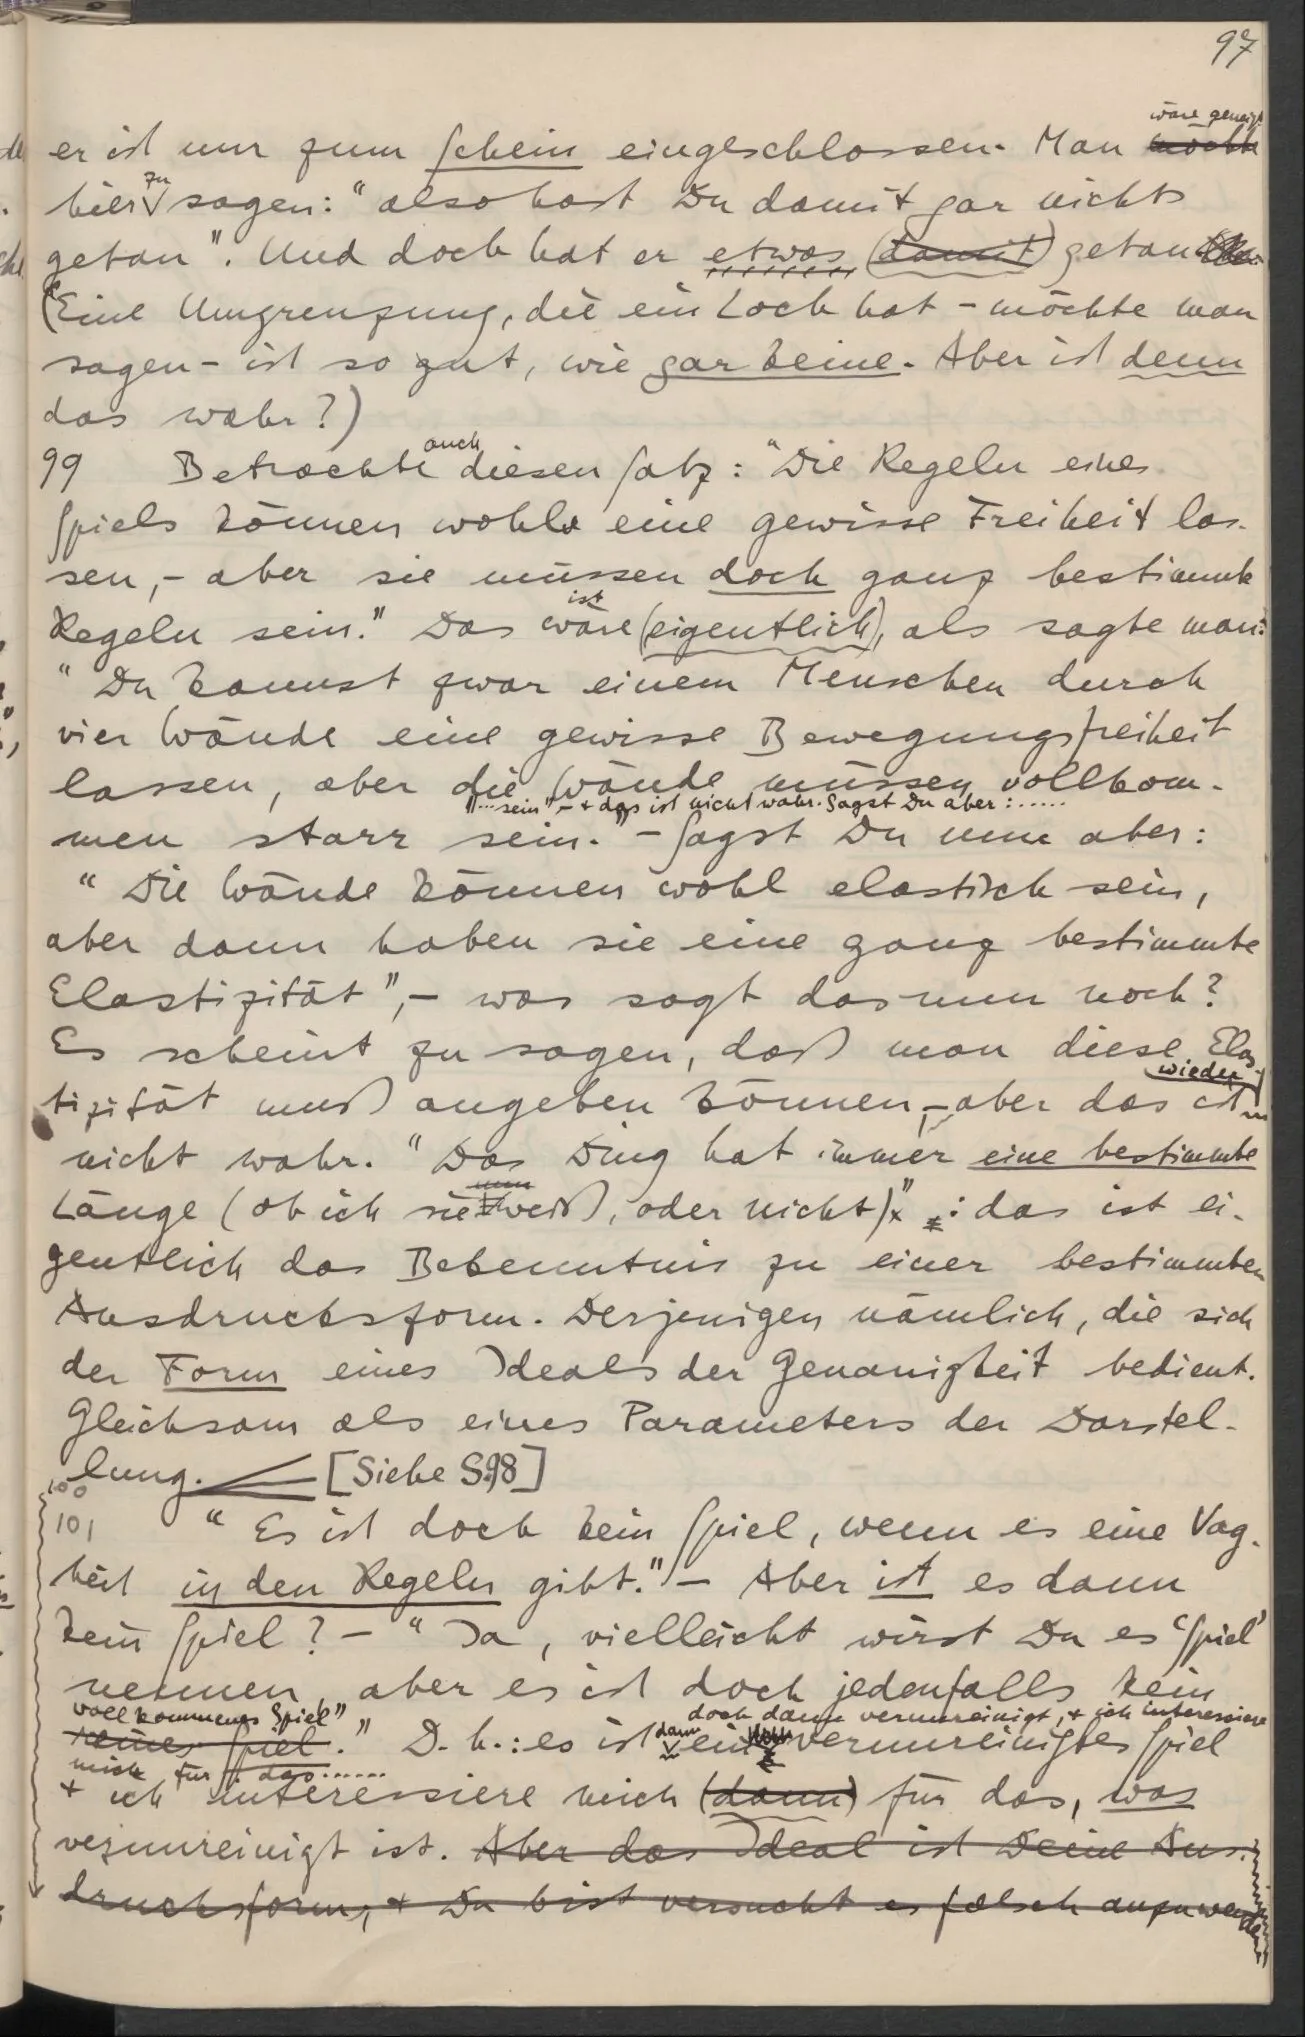 97
wäre geneigt
er ist nur zum Schein eingeschlossen. Man möchte
hier zu sagen: "also hast Du damit gar nichts
getan". Und doch hat er etwas (damit) getan
(Eine Umgrenzung, die ein Loch hat – möchte man
sagen – ist so gut, wie gar keine. Aber ist denn
das wahr?)
99 Betrachte auch diesen Satz: "Die Regeln eines
Spiels können wohl eine gewisse Freiheit las-
sen, – aber sie müssen doch ganz bestimmte
ist
Regeln sein." Das wäre (eigentlich), als sagte man:
"Du kannst zwar einem Menschen durch
vier Wände eine gewisse Bewegungsfreiheit
lassen, aber die Wände müssen vollkom-
"... sein" – + das ist nicht wahr. Sagst Du aber: .....
men starr sein." – Sagst Du nun aber:
"Die Wände können wohl elastisch sein,
aber dann haben sie eine ganz bestimmte
Elastizität", – was sagt das nun noch?
Es scheint zu sagen, daß man diese Elas-
wieder
tizität muß angeben können, – aber das ist
nicht wahr. "Das Ding hat immer eine bestimmte
nun
Länge (ob ich sie weiß, oder nicht)": das ist ei-
gentlich das Bekenntnis zu einer bestimmten
Ausdrucksform. Derjenigen nämlich, die sich
der Form eines Ideals der Genauigkeit bedient.
Gleichsam als eines Parameters der Darstel-
lung. [Siehe S.98]
100
101 "Es ist doch kein Spiel, wenn es eine Vag-
heit in den Regeln gibt." – Aber ist es dann
kein Spiel? – "Ja, vielleicht wirst Du es 'Spiel'
nennen, aber es ist doch jedenfalls kein
vollkommenes Spiel" doch dann verunreinigt, + ich interessiere
reines Spiel." D.h.: es ist dann ein verunreinigtes Spiel
mich für das......
+ ich interessiere mich (dann) für das, was
verunreinigt ist. Aber das Ideal ist Deine Aus-
drucksform, + Du bist versucht es falsch anzuwenden